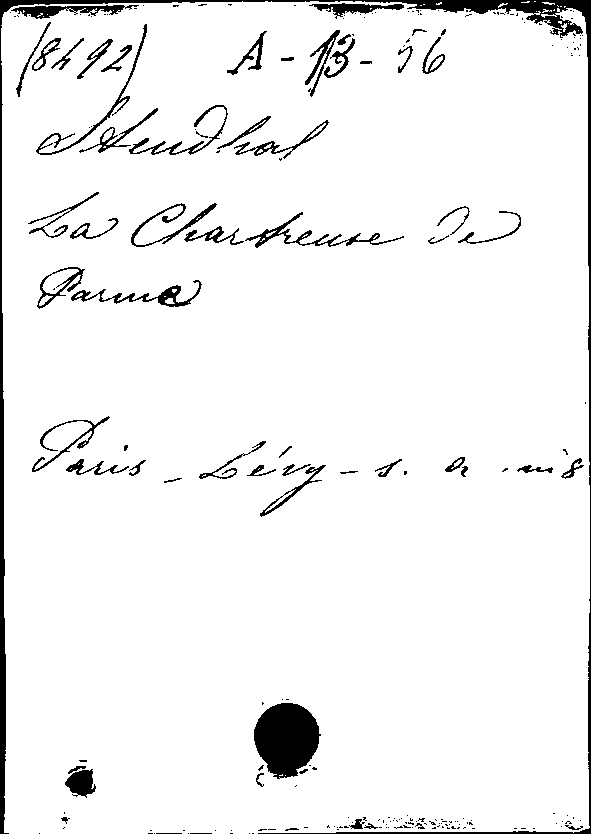 (8492) A-13-56
Stendhal
La Chartreuse de
Parme
Paris - Lévy - s. a. in 8